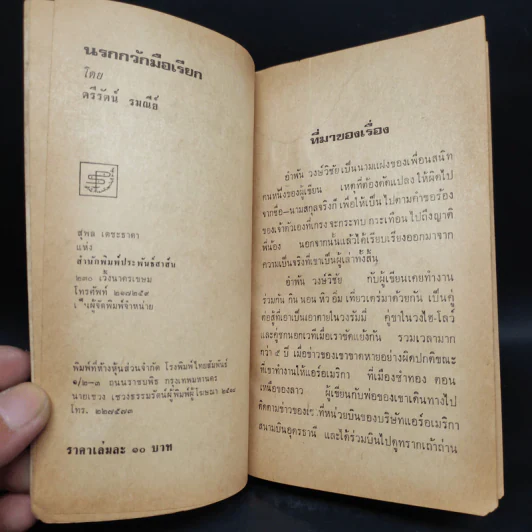 นรกกวักมือเรียก
โดย
ตรีรัตน์ รมณีย์
สุพล เตชะธาดา
แห่ง
สำนักพิมพ์ประพันธ์สาส์น
๒๓๐ เวิ้งนาครเขษม
โทรศัพท์ ๒๒๗๒๕๙
เป็นผู้จัดพิมพ์จำหน่าย
พิมพ์ที่ห้างหุ้นส่วนจำกัด โรงพิมพ์ไทยสัมพันธ์
๑/๒–๓ ถนนราชบพิธ กรุงเทพมหานคร
นายเชวง เชวงธรรมรัตน์ผู้พิมพ์ผู้โฆษณา
โทร. ๒๒๗๕๗๓
ราคาเล่มละ ๑๐ บาท
ที่มาของเรื่อง
อำพัน วงษ์วิชัยเป็นนามแฝงของเพื่อนสนิท
คนหนึ่งของผู้เขียน เหตุที่ต้องดัดแปลง ให้ผิดไป
จากชื่อ–นามสกุลจริงก็ เพื่อให้เป็น ไปตามคำขอร้อง
ของเจ้าตัวเองที่เกรงจะกระทบกระเทือน ไปถึงญาติ
พี่น้อง นอกจากนั้นแล้วได้เรียบเรียงออกมาจาก
ความเป็นจริงที่เขาเป็นผู้เล่าทั้งสิ้น
อำพัน วงษ์วิชัย กับผู้เขียนเคยทำงาน
ร่วมกัน กิน นอน หิว อิ่ม เที่ยวเตร่มาด้วยกัน เป็นคู่
ต่อสู้ที่เขาเป็นเอาตายในวงรัมมี่ คู่ขาในวงไฮ–โลว์
และคู่ชกนอกเวทีเมื่อเราขัดแย้งกัน รวมเวลามาก
กว่า ๕ ปี เมื่อข่าวของเขาขาดหายอย่างผิดปกติขณะ
ที่เขาทำงานให้แอร์อเมริกา ที่เมืองซำทอง ตอน
เหนือของลาว ผู้เขียนกับพ่อของเขาเดินทางไป
ติดตามข่าวของเขาที่หน่วยบินของบริษัทแอร์อเมริกา
สนามบินอุดรธานี และได้ร่วมบินไปดูทรากเถ้าถ่าน